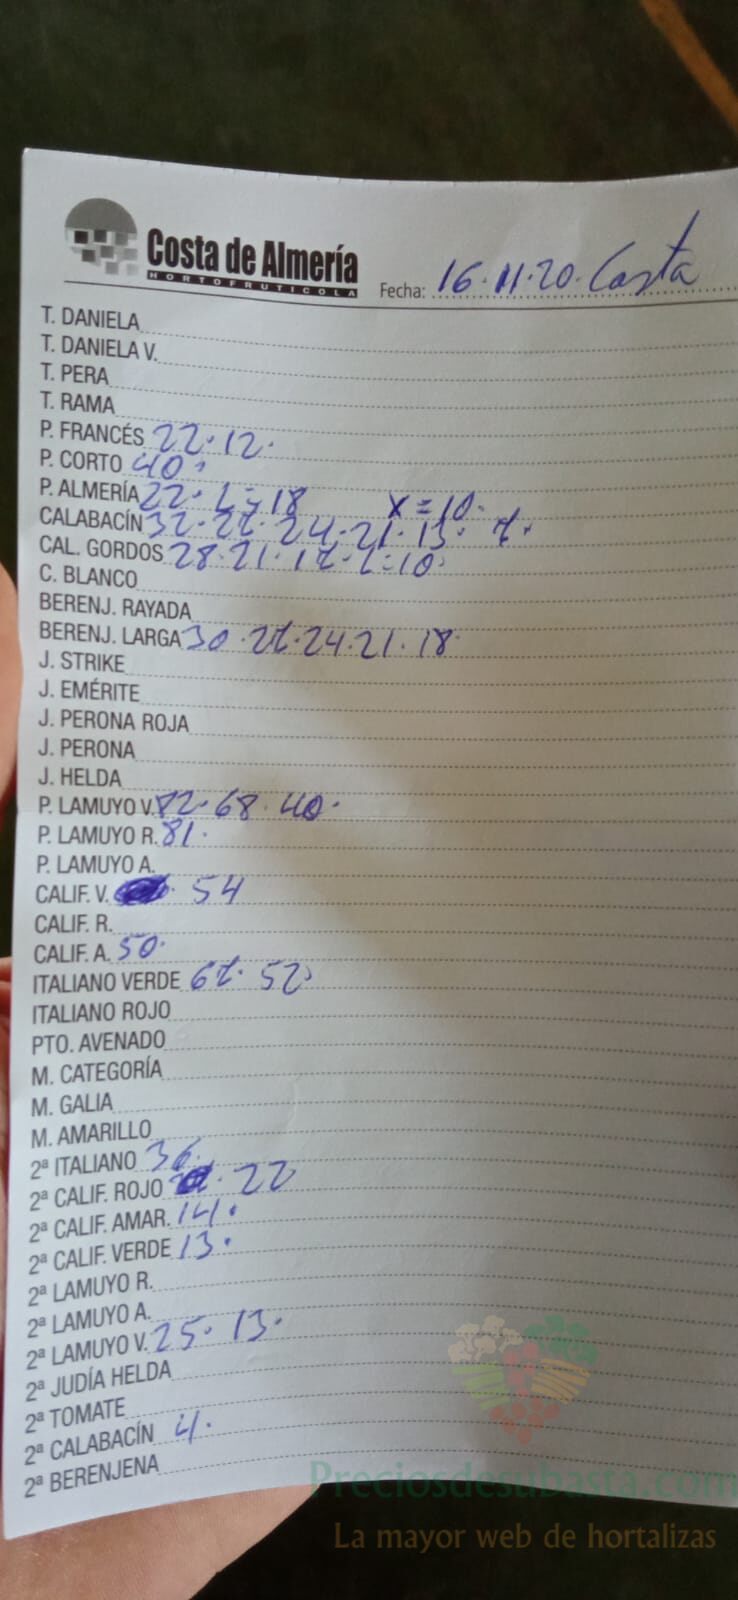 Costa de Almería
HORTOFRUTICOLA
Fecha: 16.11.20. Costa
T. DANIELA
T. DANIELA V.
T. PERA
T. RAMA
P. FRANCÉS 22. 12.
P. CORTO 40.
P. ALMERÍA 22. L=18 X=10.
CALABACÍN 32. 27. 24. 21. 13. 7.
CAL. GORDOS 28. 21. 17. L=10.
C. BLANCO
BERENJ. RAYADA
BERENJ. LARGA 30. 27. 24. 21. 18.
J. STRIKE
J. EMÉRITE
J. PERONA ROJA
J. PERONA
J. HELDA
P. LAMUYO V. 82. 68. 40.
P. LAMUYO R. 81.
P. LAMUYO A.
CALIF. V. 54
CALIF. R.
CALIF. A. 50.
ITALIANO VERDE 67. 52.
ITALIANO ROJO
PTO. AVENADO
M. CATEGORÍA
M. GALIA
M. AMARILLO
2ª ITALIANO 36.
2ª CALIF. ROJO 22
2ª CALIF. AMAR. 14.
2ª CALIF. VERDE 13.
2ª LAMUYO R.
2ª LAMUYO A.
2ª LAMUYO V. 25. 13.
2ª JUDÍA HELDA
2ª TOMATE
2ª CALABACÍN 4.
2ª BERENJENA
Preciosdesubasta.com
La mayor web de hortalizas